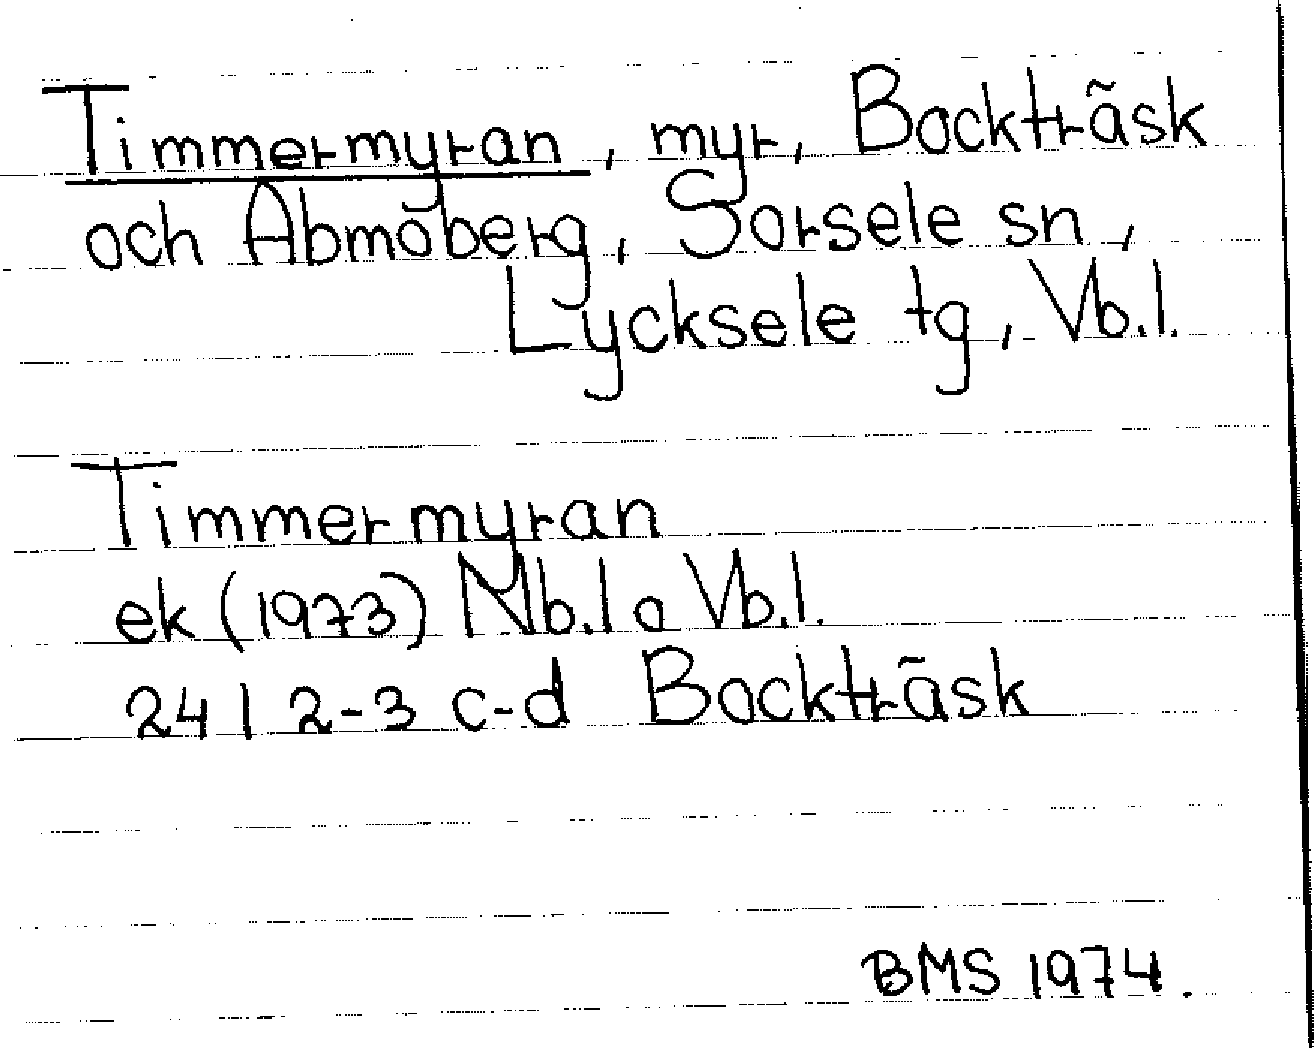 Timmermyran, myr, Bockträsk
och Abmoberg, Sorsele sn,
Lycksele tg, Vb.l.
Timmermyran
ek (1973) Nb.l o Vb.l.
24 I 2-3 c-d Bockträsk
BMS 1974.